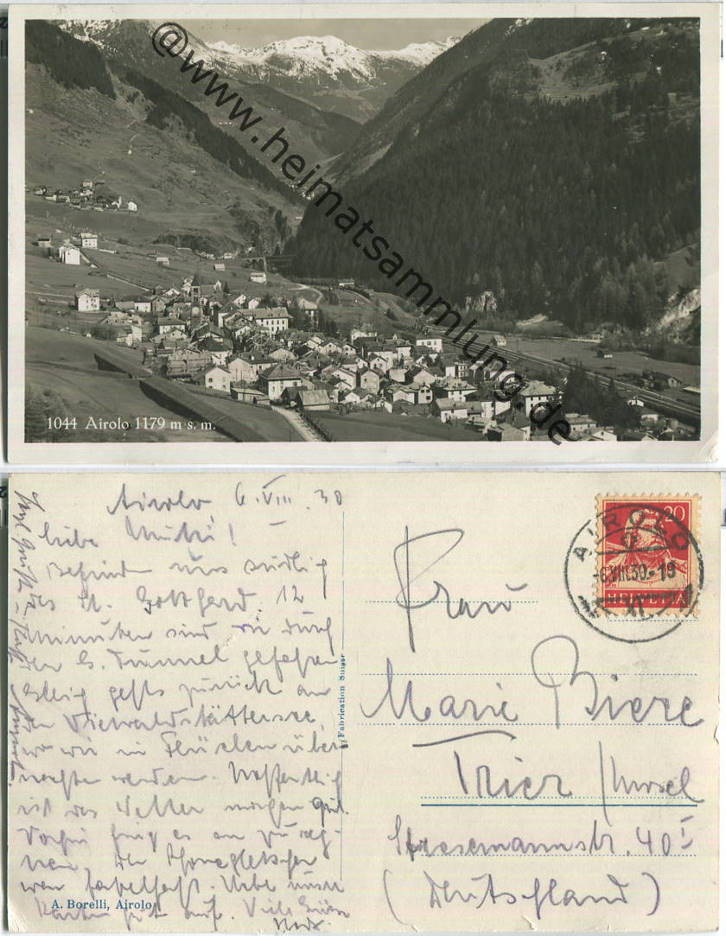 @www.heimatsammlung.de
1044 Airolo 1179 m s. m.
Airolo, 6. VIII. 30
Liebe Mutti!
Befinden uns südlich
des St. Gotthard. 12
Minuten sind wir durch
den G. Tunnel gefahren
Gleich gehts zurück an
den Vierwaldstättersee,
wo wir in Flüelen über-
nachten werden. Hoffentlich
ist das Wetter morgen gut.
Vorhin fing es an zu reg-
nen. Der Rhonegletscher
war fabelhaft. Hebe unsere
Karten gut auf. Viele Grüsse
A. Borelli, Airolo
Fabrication Suisse
AIROLO
-6.VIII.30.-19
20
HELVETIA
Frau
Marie Biere
Trier / Mosel
Stresemannstr. 40 I
(Deutschland)